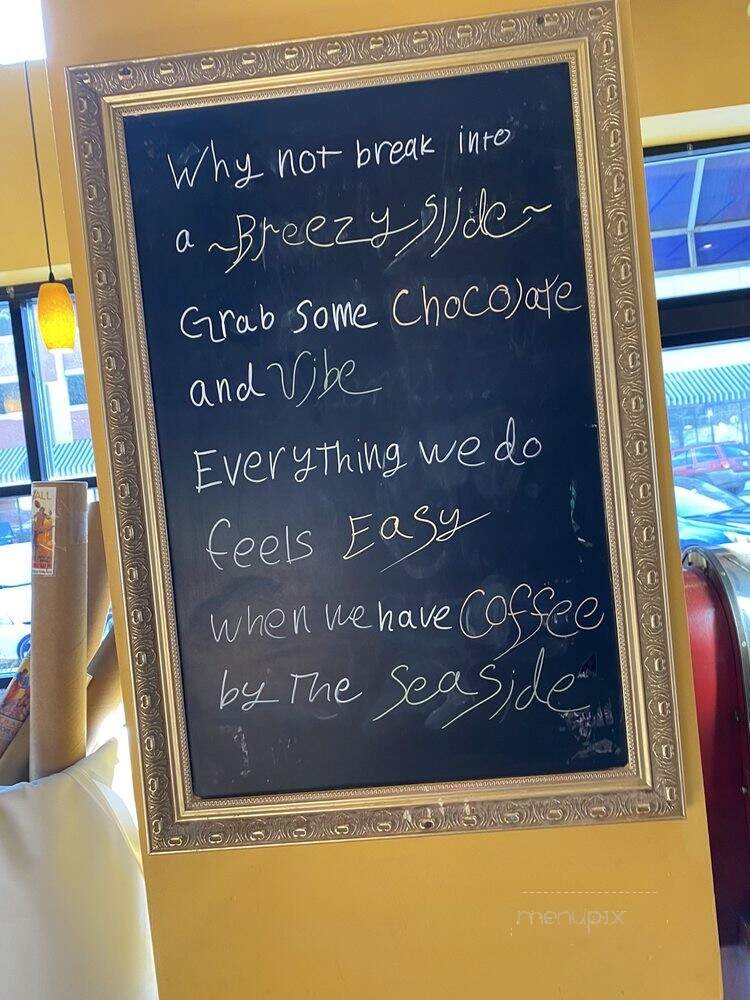 Why not break into
a ~Breezy Slide~
Grab some Chocolate
and Vibe
Everything we do
feels Easy
when we have Coffee
by The Seaside
ALL
menupix